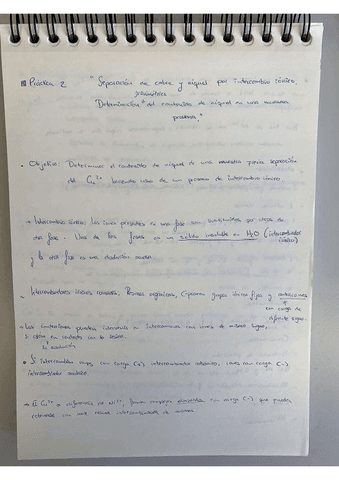 Práctica 2 "Separación de cobre y níquel por intercambio iónico.
Determinación gravimétrica del contenido de níquel en una muestra
problema"
• Objetivo: Determinar el contenido de níquel de una muestra previa separación
del Cu²⁺ haciendo uso de un proceso de intercambio iónico
→ Intercambio iónico: Los iones presentes en una fase son sustituidos por iones de
otra fase. Una de las fases es un sólido insoluble en H₂O (intercambiador
iónico)
y la otra fase es una disolución
Intercambiadores iónicos: Resinas orgánicas, grupos iónicos fijos y contraiones
en carga de
diferente signo.
Los contraiones pueden intercambiarse con iones de mismo signo,
si están en contacto con la resina.
la disolución
Si intercambian iones con carga (+) intercambiador catiónico, iones con carga (-)
intercambiador aniónico.
→ El Cu²⁺ a diferencia de Ni²⁺, forma complejos con carga (-) que pueden
retenerse con una resina intercambiadora de aniones.